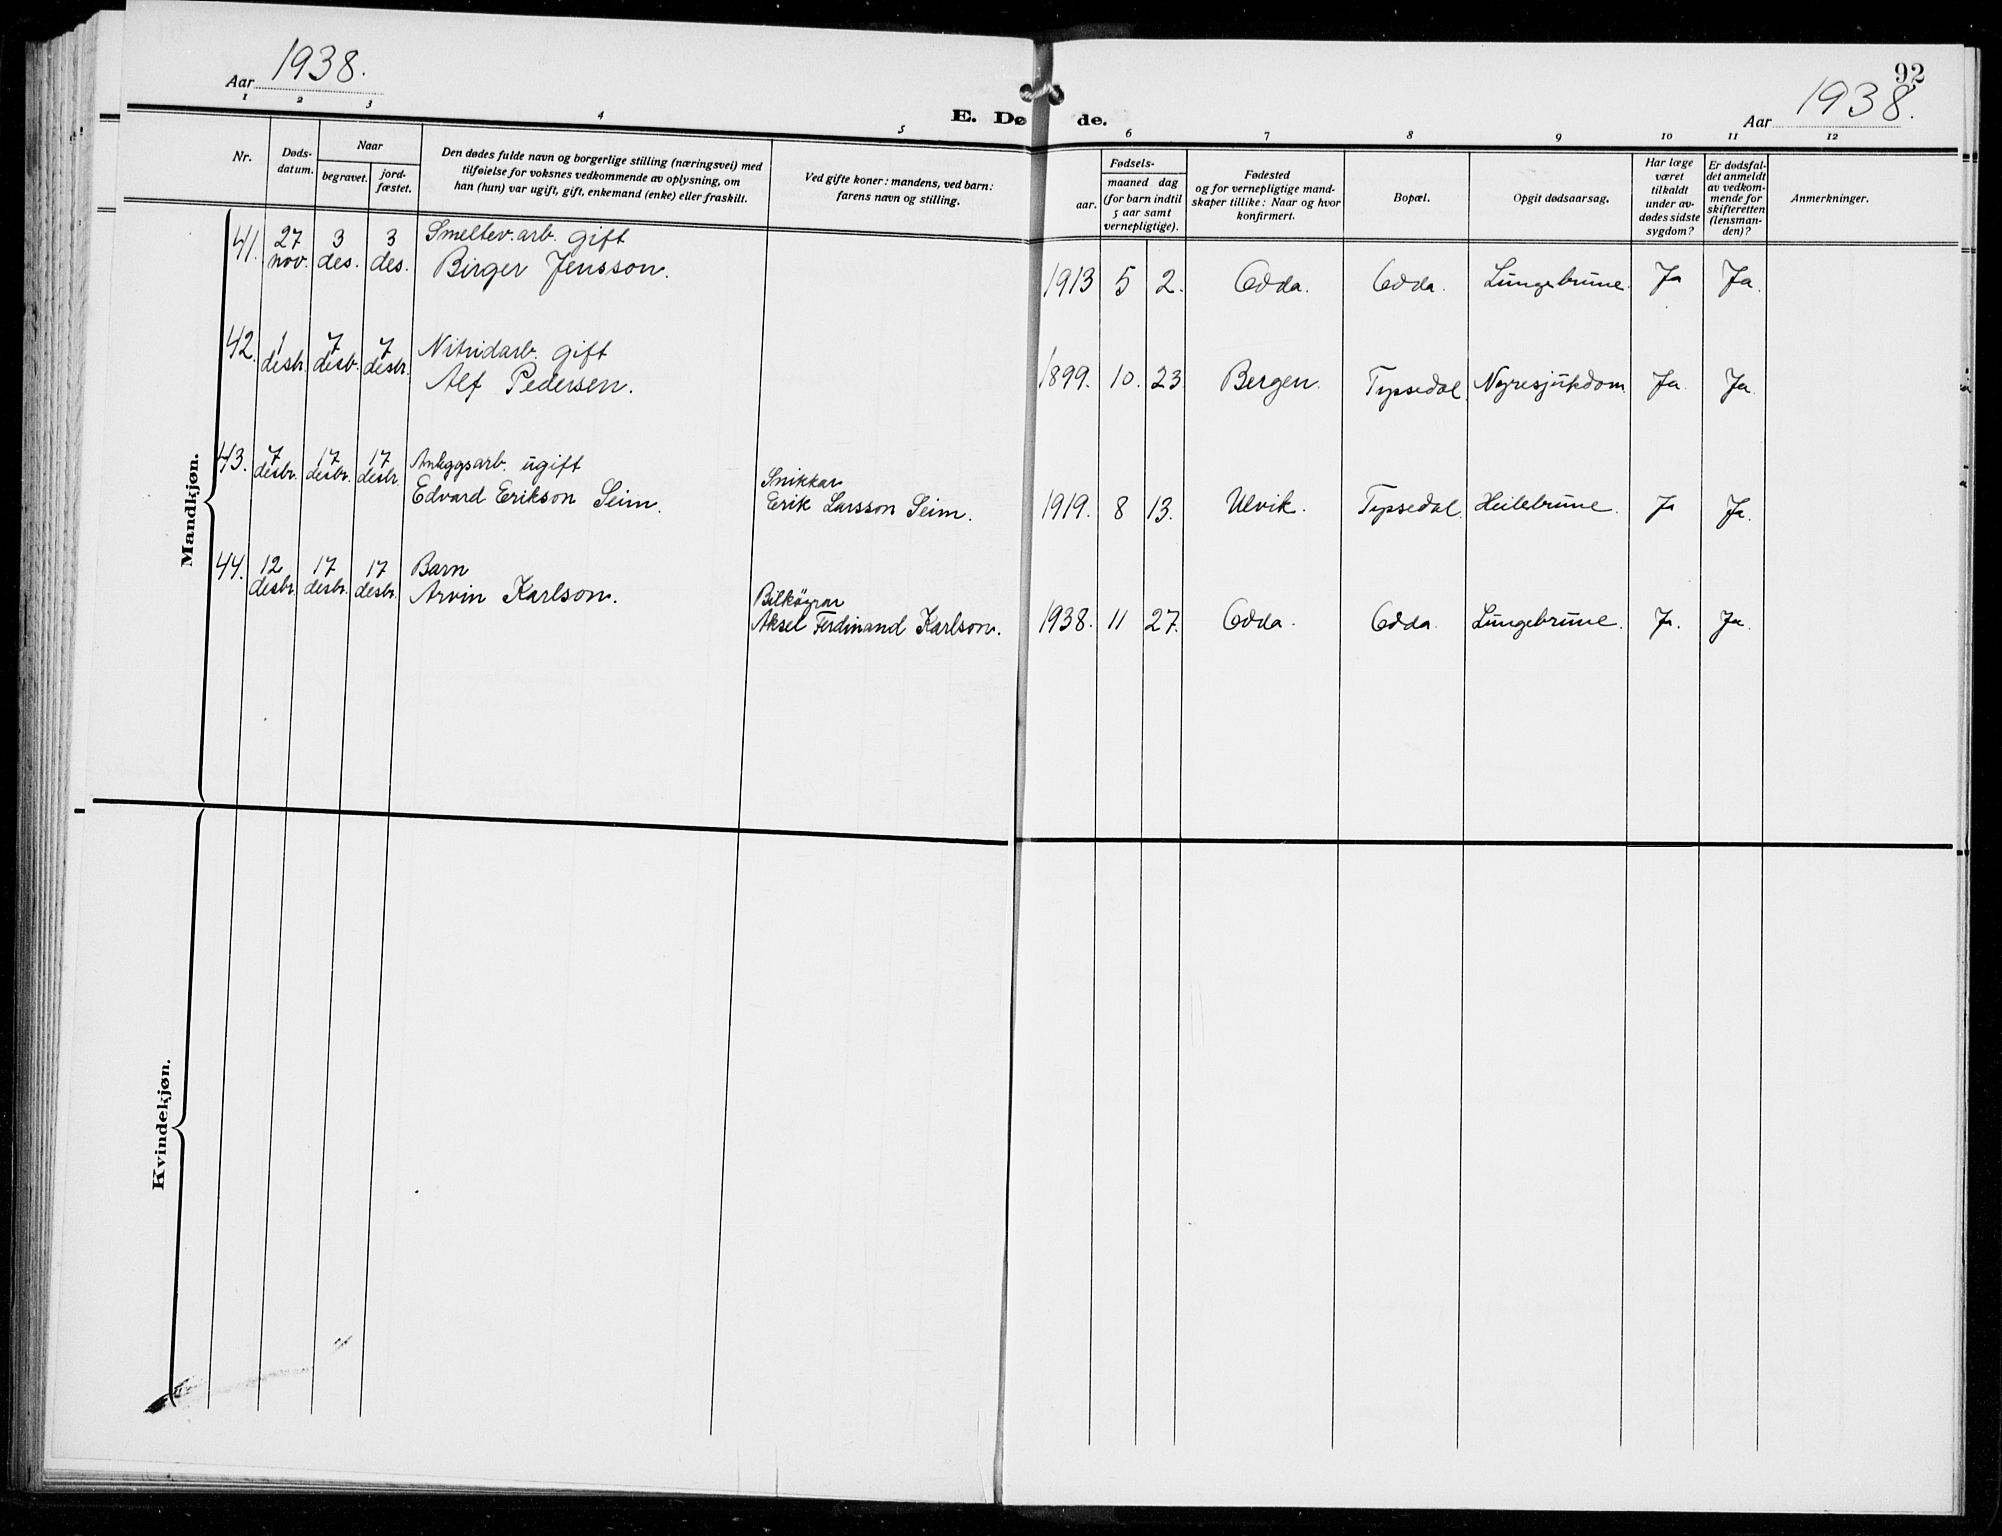 Aar 1938.
92
Aar 1938.
E. Døde.
1 2 3 4 5 6 7 8 9 10 11 12
Nr.
Døds-
datum.
Naar
begravet.
jord-
fæstet.
Den dødes fulde navn og borgerlige stilling (næringsvei) med
tilføielse for voksnes vedkommende av oplysning, om
han (hun) var ugift, gift, enkemand (enke) eller fraskilt.
Ved gifte koner: mandens, ved barn:
farens navn og stilling.
Fødsels-
aar.
maaned dag
(for barn indtil
5 aar samt
vernepligtige).
Fødested
og for vernepligtige mand-
skaper tillike: Naar og hvor
konfirmert.
Bopæl.
Opgit dødsaarsag.
Har læge
været
tilkaldt
under av-
dødes sidste
sygdom?
Er dødsfal-
det anmeldt
av vedkom-
mende for
skifteretten
(lensman-
den)?
Anmerkninger.
Mandkjøn.
41. 27 3 3 Smeltev. arb. gift
nov. des. des. Birger Jensson.
1913 5 2. Odda. Odda. Lungebrune. Ja Ja.
42. 1 7 7 Nitridarb. gift
desbr. desb. desbr. Alf Pedersen.
1899. 10. 23 Bergen. Tyssedal. Nyresjukdom Ja. Ja.
43. 7 17 17 Anleggsarb. ugift
desbr. desbr. desbr. Edvard Erikson Seim.
Snikkar
Erik Larsson Seim.
1919. 8 13. Ulvik. Tyssedal. Heilebrune. Ja Ja.
44. 12 17 17 Barn
desbr. desbr. desbr. Arvin Karlson.
Bilkøyrar
Aksel Ferdinand Karlson.
1938. 11 27. Odda. Odda. Lungebrune. Ja. Ja.
Kvindekjøn.